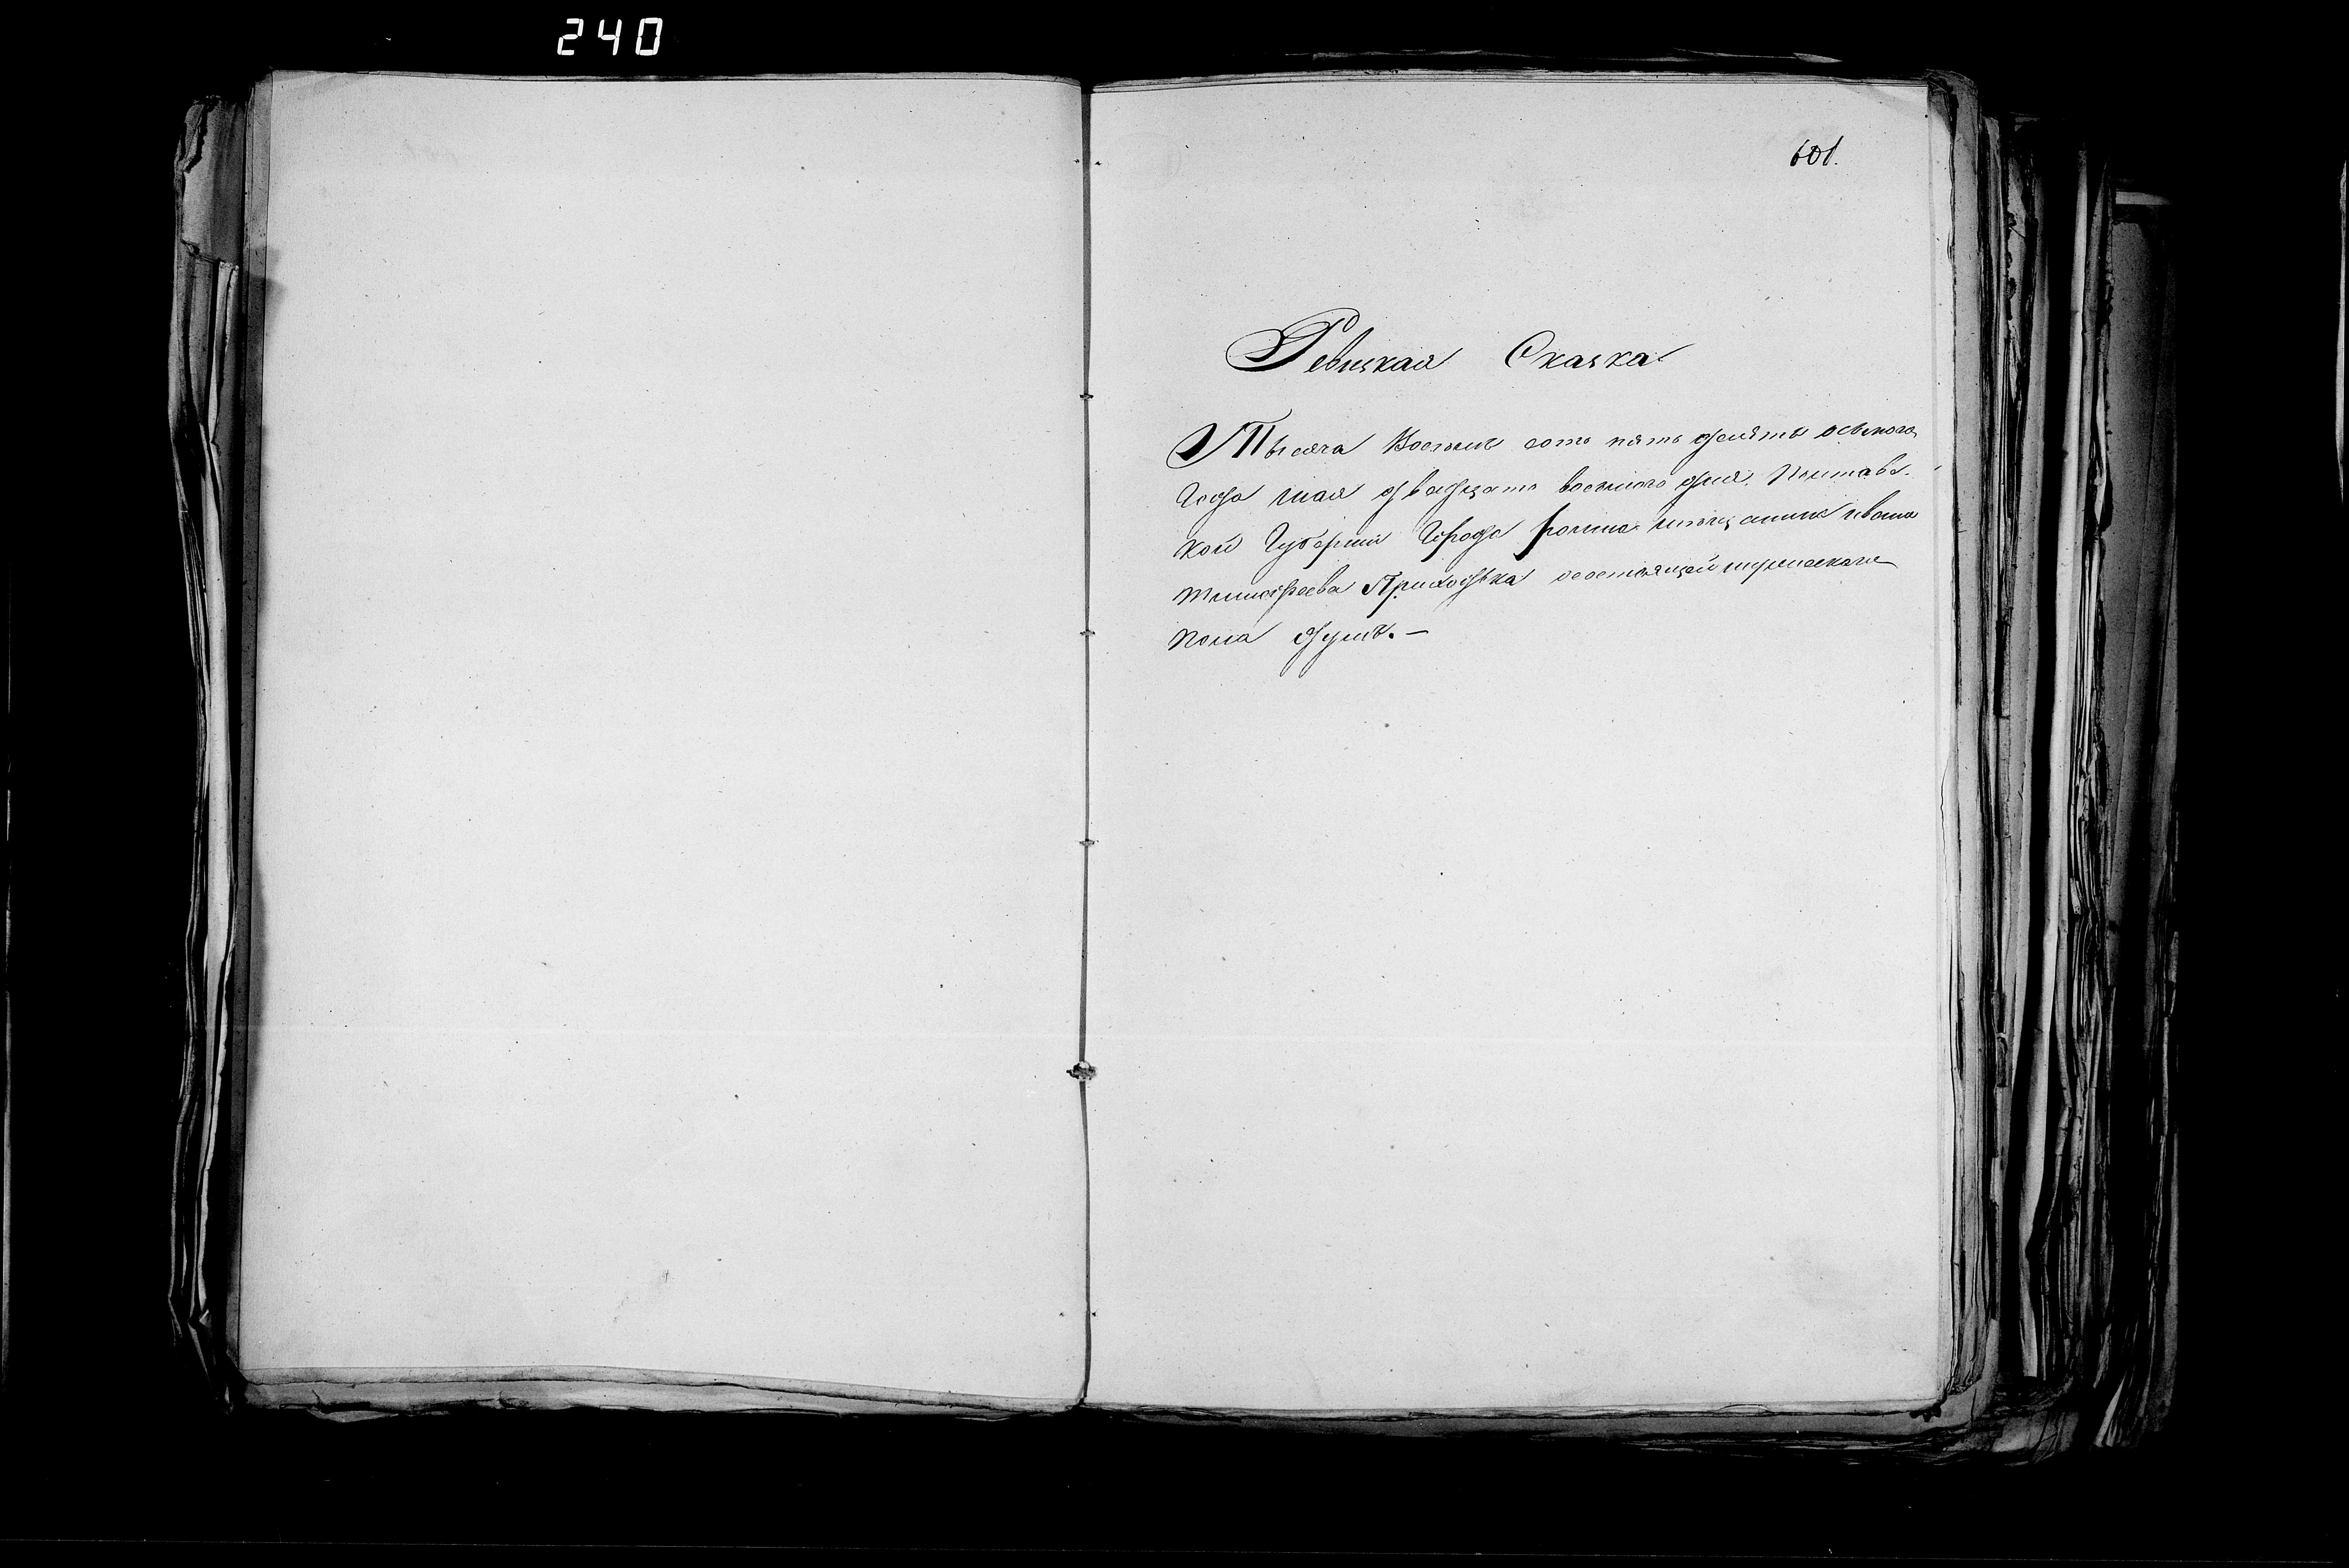 240
601.
Ревизкая Сказка
Тысяча Восемь сотъ пять десятъ осьмого
Года мая двадцать восмого дня. Полтавс-
кой Губерніи Города Ромна мѣщанина ивана
тимофеева Приходька о состоящей мужескаго
пола душѣ. —